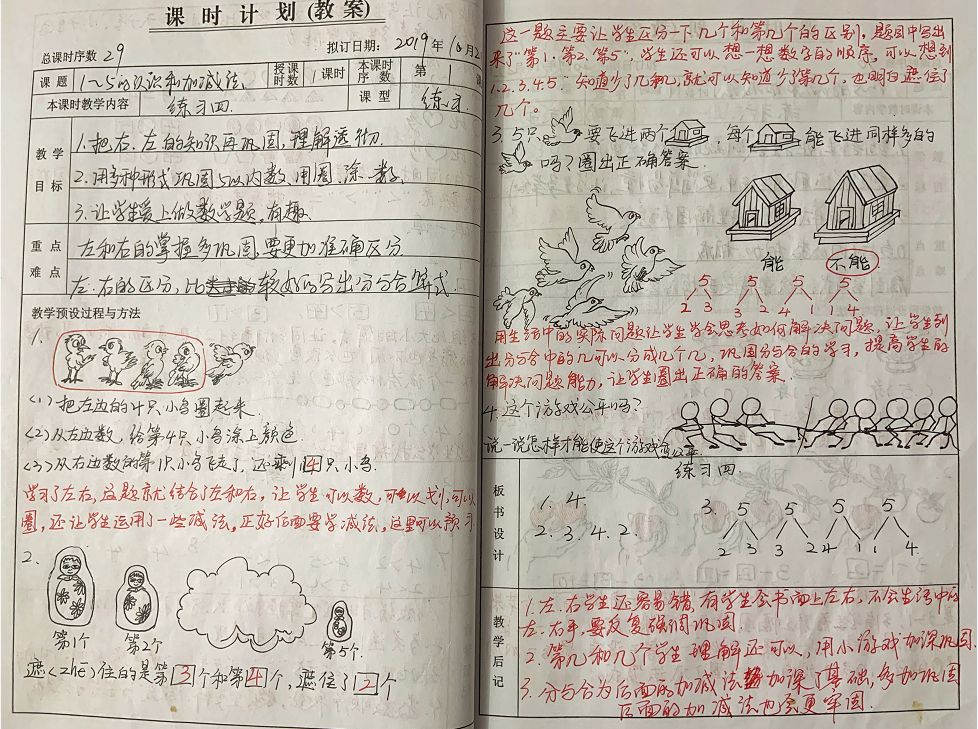 课 时 计 划 (教 案)
总课时序数 29 拟订日期： 2019年10月2
课 题 1~5的认识和加减法. 授课时数 1课时 本课时序数 第 1 课
本课时教学内容 练习四. 课 型 练习.
教 学 目 标
1.把右、左的知识再巩固,理解透彻.
2.用多种形式巩固5以内数,用圈、涂、数.
3.让学生爱上做数学题,有趣.
重 点 左和右的掌握多巩固,要更加准确区分
难 点 左.右的区分,比较好的写出分与合算式.
教学预设过程与方法
1.
<1>把左边的4只小鸟圈起来.
<2>从左边数,给第4只小鸟涂上颜色.
<3>从右边数的第1只小鸟飞走了,还剩4只小鸟.
学习了左右,这题就结合了左和右,让学生可以数,可以划,可以
圈,还让学生运用了一些减法,正好后面要学减法,这里可以预习
2.
第1个 第2个 第5个.
遮<zhē>住的是第3个和第4个,遮住了2个
这一题主要让学生区分一下几个和第几个的区别,题目中写出
来了"第1.第2.第5",学生还可以想一想数字的顺序,可以想到
1.2.3.4.5.知道少了几和几,就可以知道少了第几个,也明白遮住了
几个。
3. 5只 要飞进两个 ,每个 能飞进同样多的
吗?圈出正确答案.
能 不能
5 5 5 5
2 3 3 2 4 1 1 4
用生活中的实际问题让学生学会思考如何解决问题,让学生列
出分与合中的几可以分成几个几,巩固分与合的学习,提高学生的
解决问题能力,让学生圈出正确的答案.
4.这个游戏公平吗?
说一说怎样才能使这个游戏公平.
板 书 设 计
练习四
1. 4.
2. 3. 4. 2.
3. 5 5 5 5
2 3 3 2 4 1 1 4
教 学 后 记
1.左.右学生还容易错,有学生会书面上左右,不会生活中的
左.右手,要反复强调巩固.
2.第几和几个学生理解还可以,用小游戏加深巩固.
3.分与合为后面的加减法加深了基础,多加巩固
后面的加减法也会更牢固.